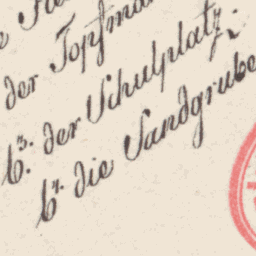 der Topfma
b³. der Schulplatz.
b⁴. die Sandgrube